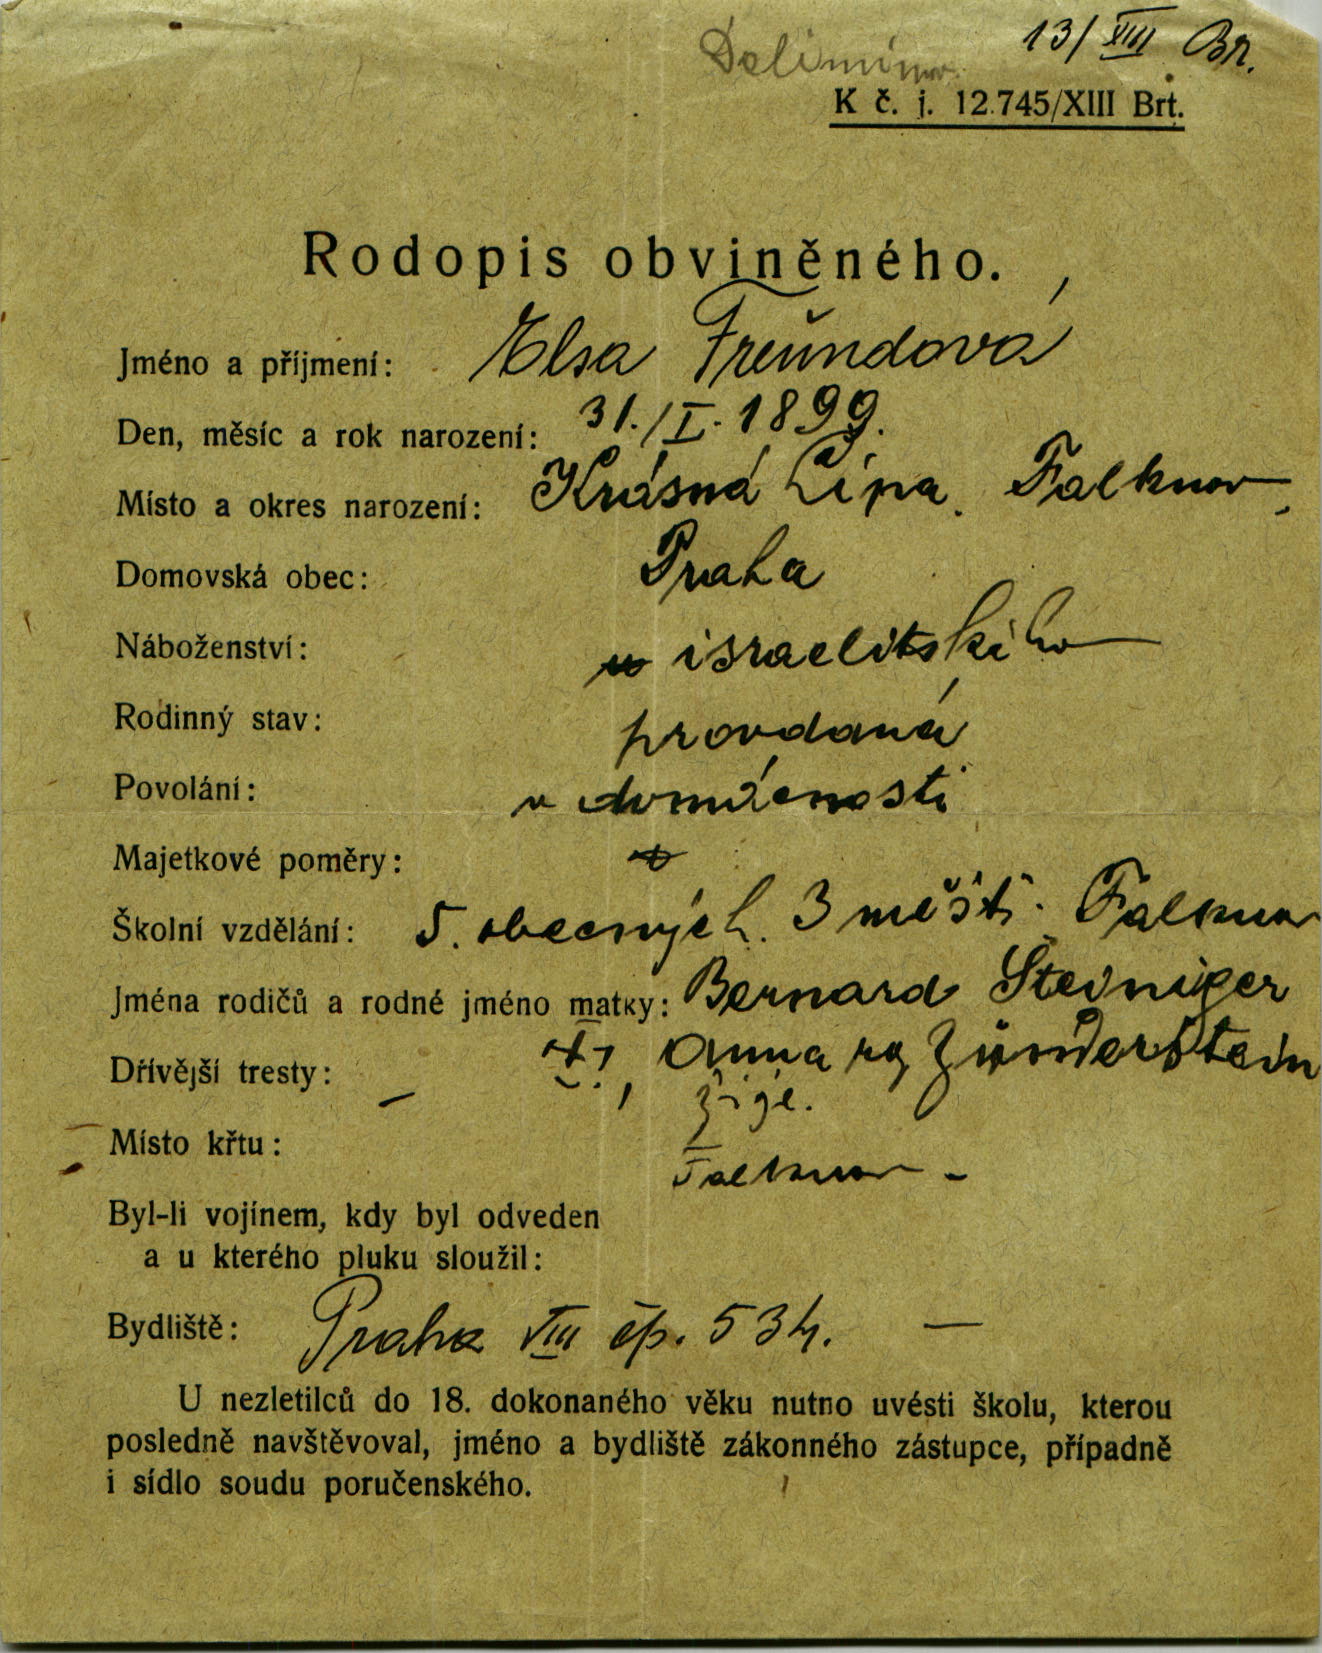 13/VIII Br.
K č. j. 12.745/XIII Brt.
Rodopis obviněného.
Jméno a příjmení: Elsa Freŭndová
Den, měsíc a rok narození: 31./I. 1899.
Místo a okres narození: Krásná Lípa. Falknov,
Domovská obec: Praha
Náboženství: israelitského
Rodinný stav: provdaná
Povolání: v domácnosti
Majetkové poměry:
Školní vzdělání: 5. obecných. 3 měšť. Falknov
Jména rodičů a rodné jméno matky: Bernard Steiniger
Dřívější tresty: – Anna Zünderstein
žije.
Místo křtu: Falknov –
Byl-li vojínem, kdy byl odveden
a u kterého pluku sloužil:
Bydliště: Praha VIII čp. 534. —
U nezletilců do 18. dokonaného věku nutno uvésti školu, kterou
posledně navštěvoval, jméno a bydliště zákonného zástupce, případně
i sídlo soudu poručenského.